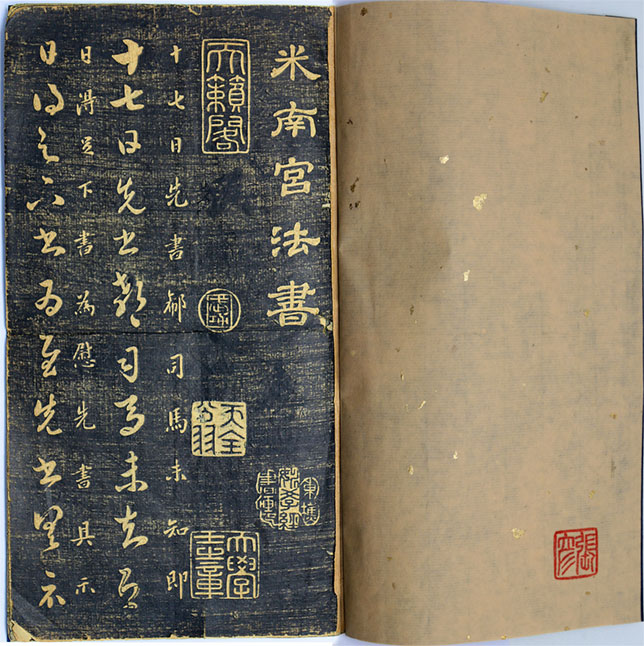 米南宮法書
天籟閣
十七日先書郗司馬未知即
十七日先書郗司馬未去即
日得足下書為慰先書具示
日得足下書為慰先書具示